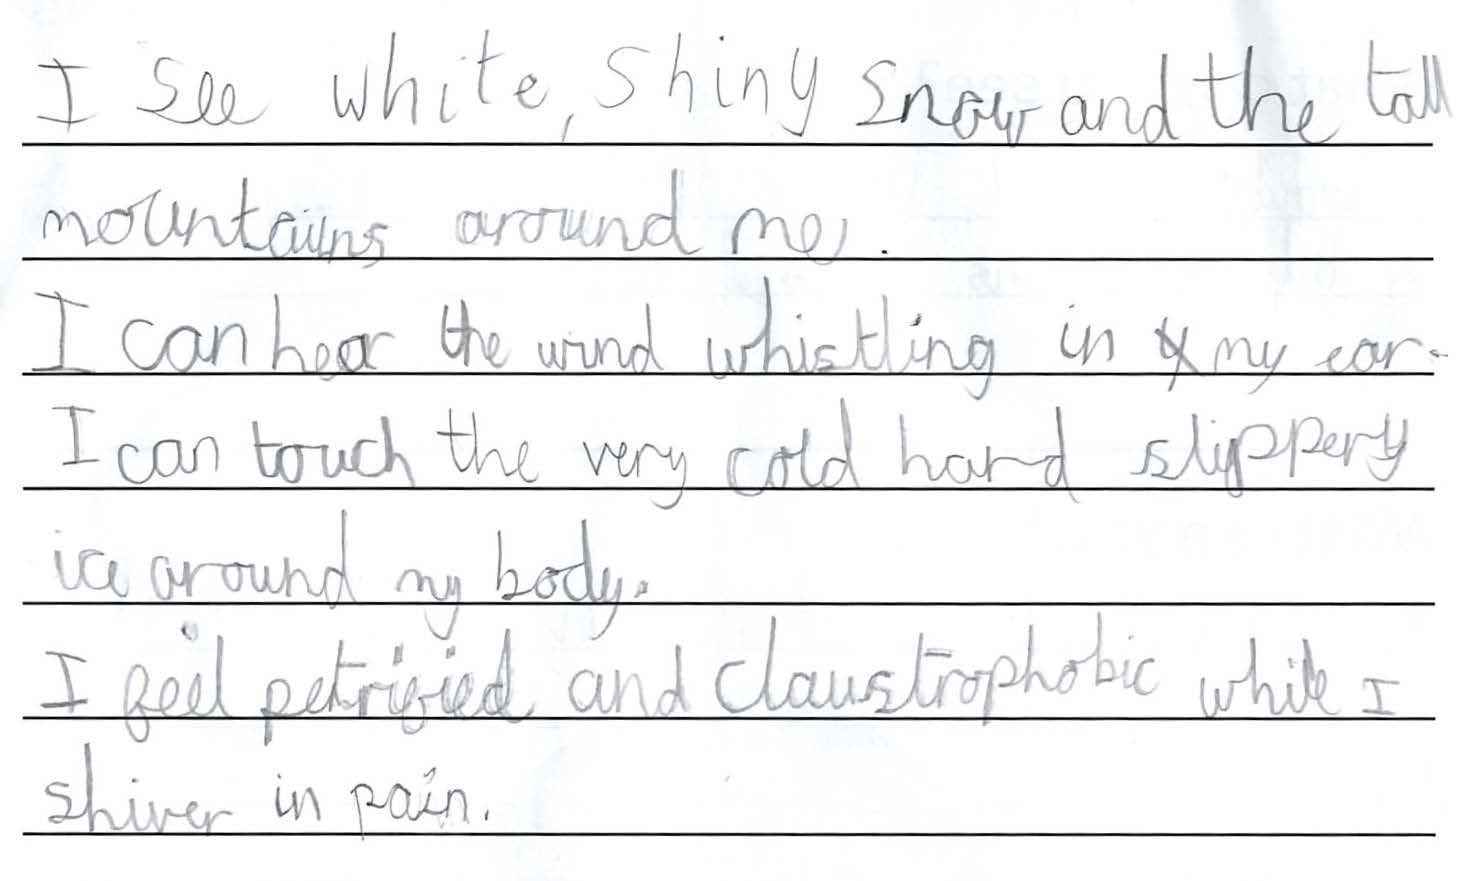 I see white, shiny snow and the tall
mountains around me.
I can hear the wind whistling in my ear.
I can touch the very cold hard slippery
ice around my body.
I feel petrified and claustrophobic while I
shiver in pain.